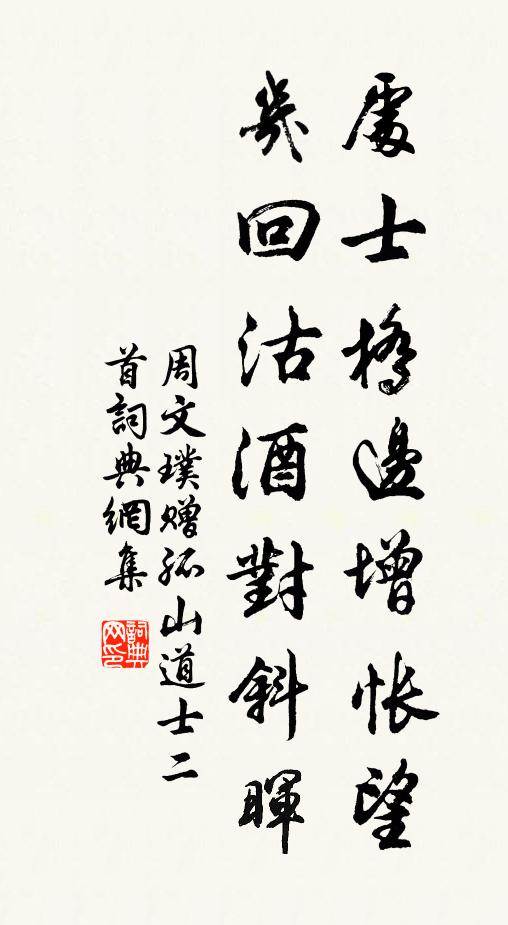 處士橋邊增悵望
幾回沽酒對斜暉
周文璞贈孤山道士二
首詞典網集
詞典
网印